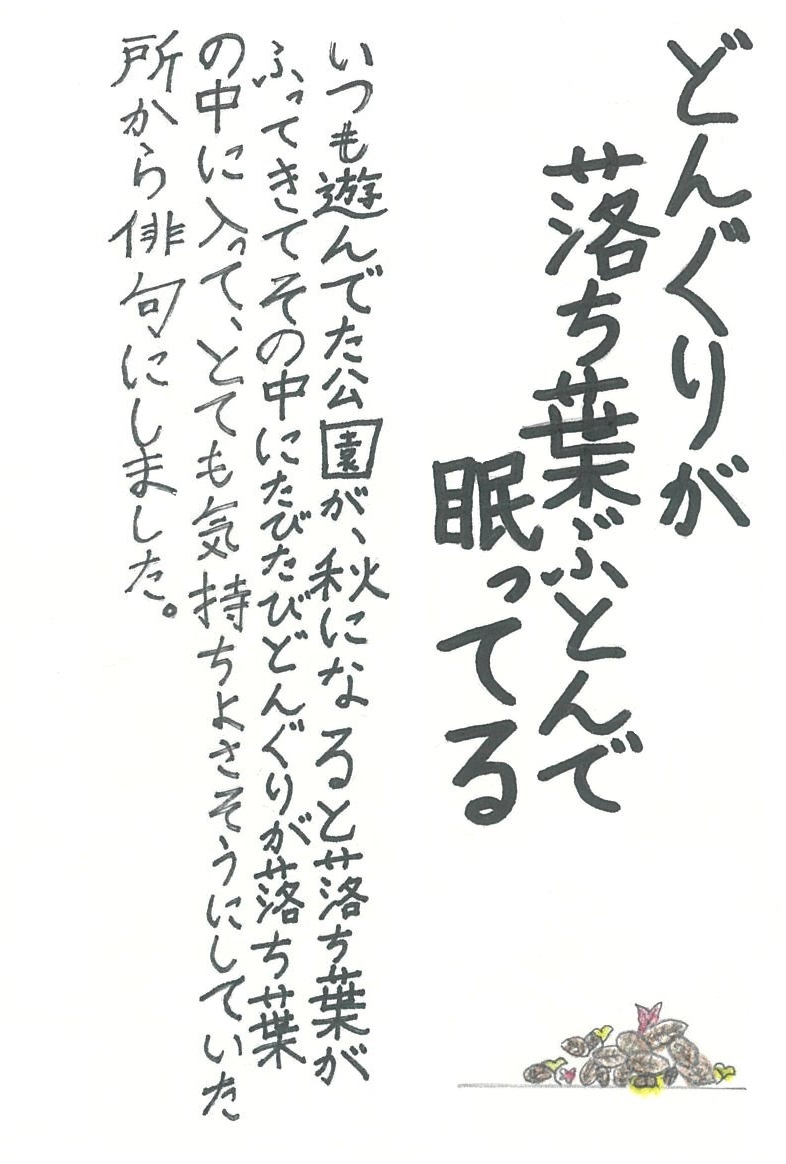 どんぐりが
落ち葉ぶとんで
眠ってる
いつも遊んでた公園が、秋になると落ち葉が
ふってきてその中にたびたびどんぐりが落ち葉
の中に入って、とても気持ちよさそうにしていた
所から俳句にしました。